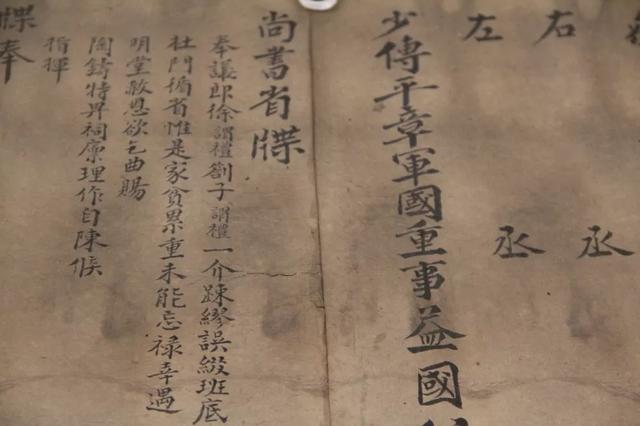 右丞
左丞
少傅平章軍國重事益國
尚書省牒
奉議郎徐謂禮劄子謂禮一介踈繆誤綴班底
杜門循省惟是家貧累重未能忘祿幸遇
明堂赦恩欲乞曲賜
陶鑄特畀祠廩理作自陳候
指揮
牒奉